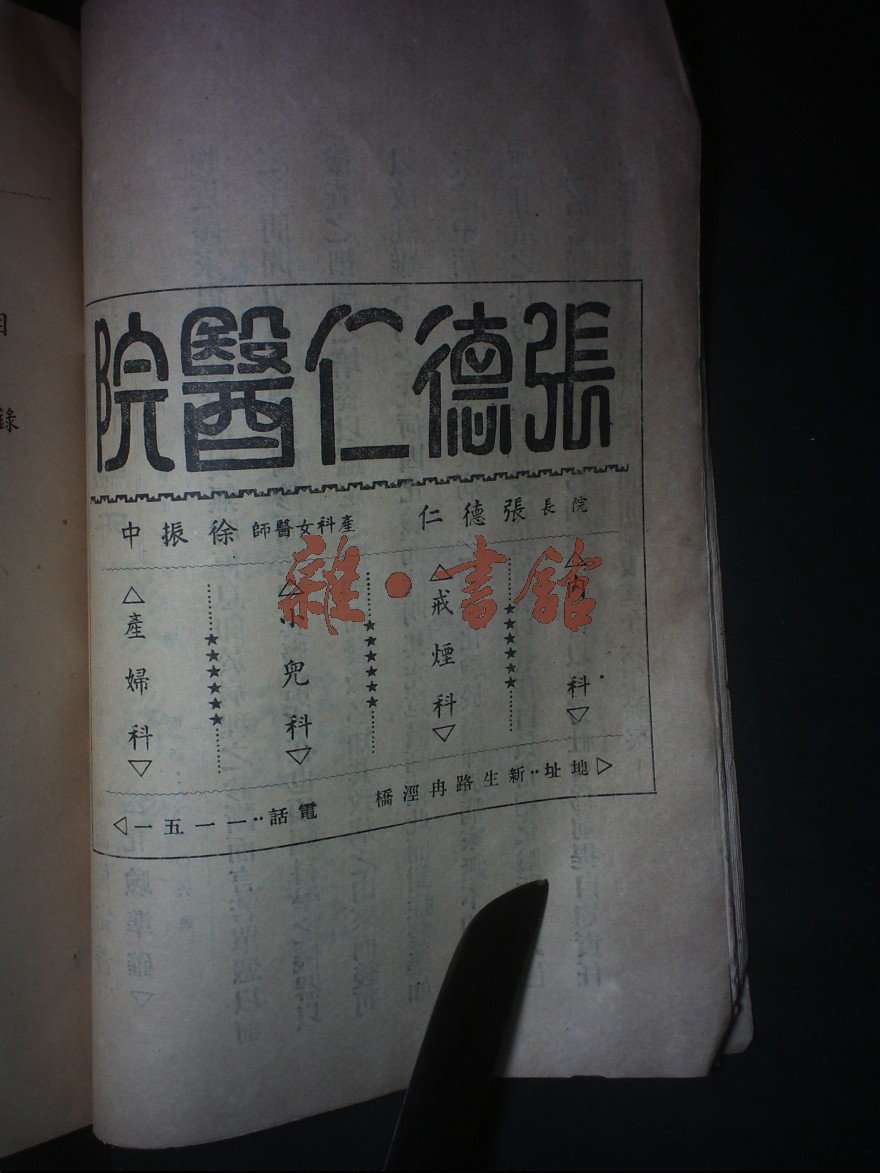 張德仁醫院
院長張德仁
產科女醫師徐振中
科▽
△戒煙科▽
△小兒科▽
△產婦科▽
地址：新生路冉涇橋
電話：一一五一
雜·書館
目錄